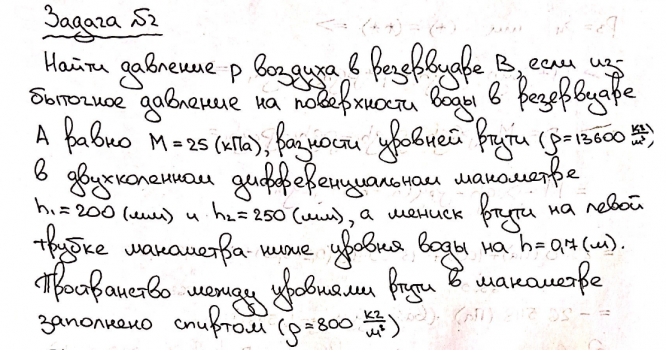 Задача №2
Найти давление p воздуха в резервуаре B, если из-
быточное давление на поверхности воды в резервуаре
A равно M = 25 (кПа), разности уровней ртути (ρ=13600 кг/м³)
в двухколенном дифференциальном манометре
h₁=200 (мм) и h₂=250 (мм), а мениск ртути на левой
трубке манометра ниже уровня воды на h=0,7 (м).
Пространство между уровнями ртути в манометре
заполнено спиртом (ρ=800 кг/м³)